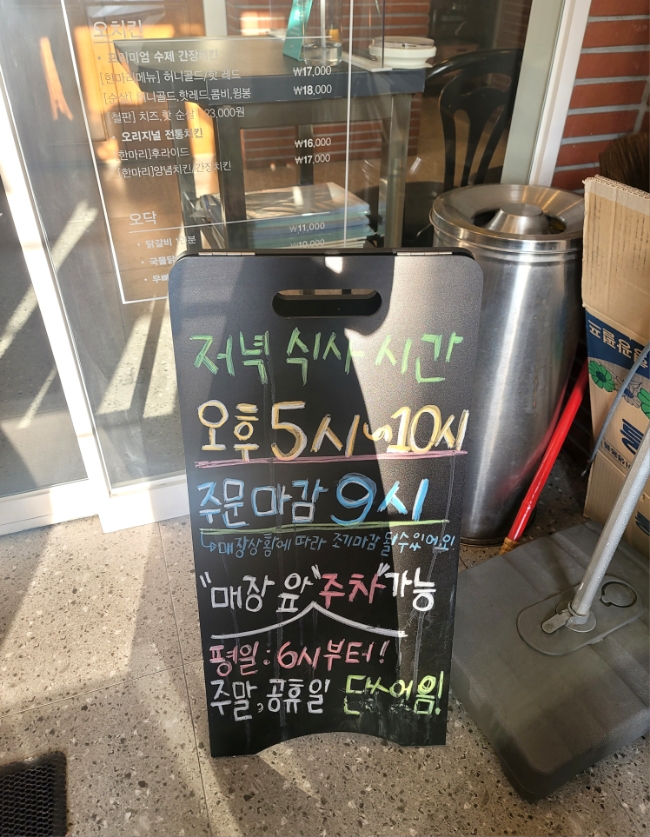 오치킨
• 프리미엄 수제 간장치킨
[한마리메뉴] 허니골드/핫 레드 ₩17,000
[순살] 허니골드,핫레드,콤비,윙봉 ₩18,000
[철판] 치즈,핫 순살 23,000원
• 오리지널 전통치킨
[한마리]후라이드 ₩16,000
[한마리]양념치킨/간장치킨 ₩17,000
오닭
• 닭갈비 ₩11,000
• 국물닭 ₩10,000
• 무뼈
저녁 식사 시간
오후 5시~10시
주문마감 9시
↳매장상황에 따라 조기마감 될수있어요!
"매장 앞" 주차 가능
평일: 6시부터!
주말,공휴일 단속없음!